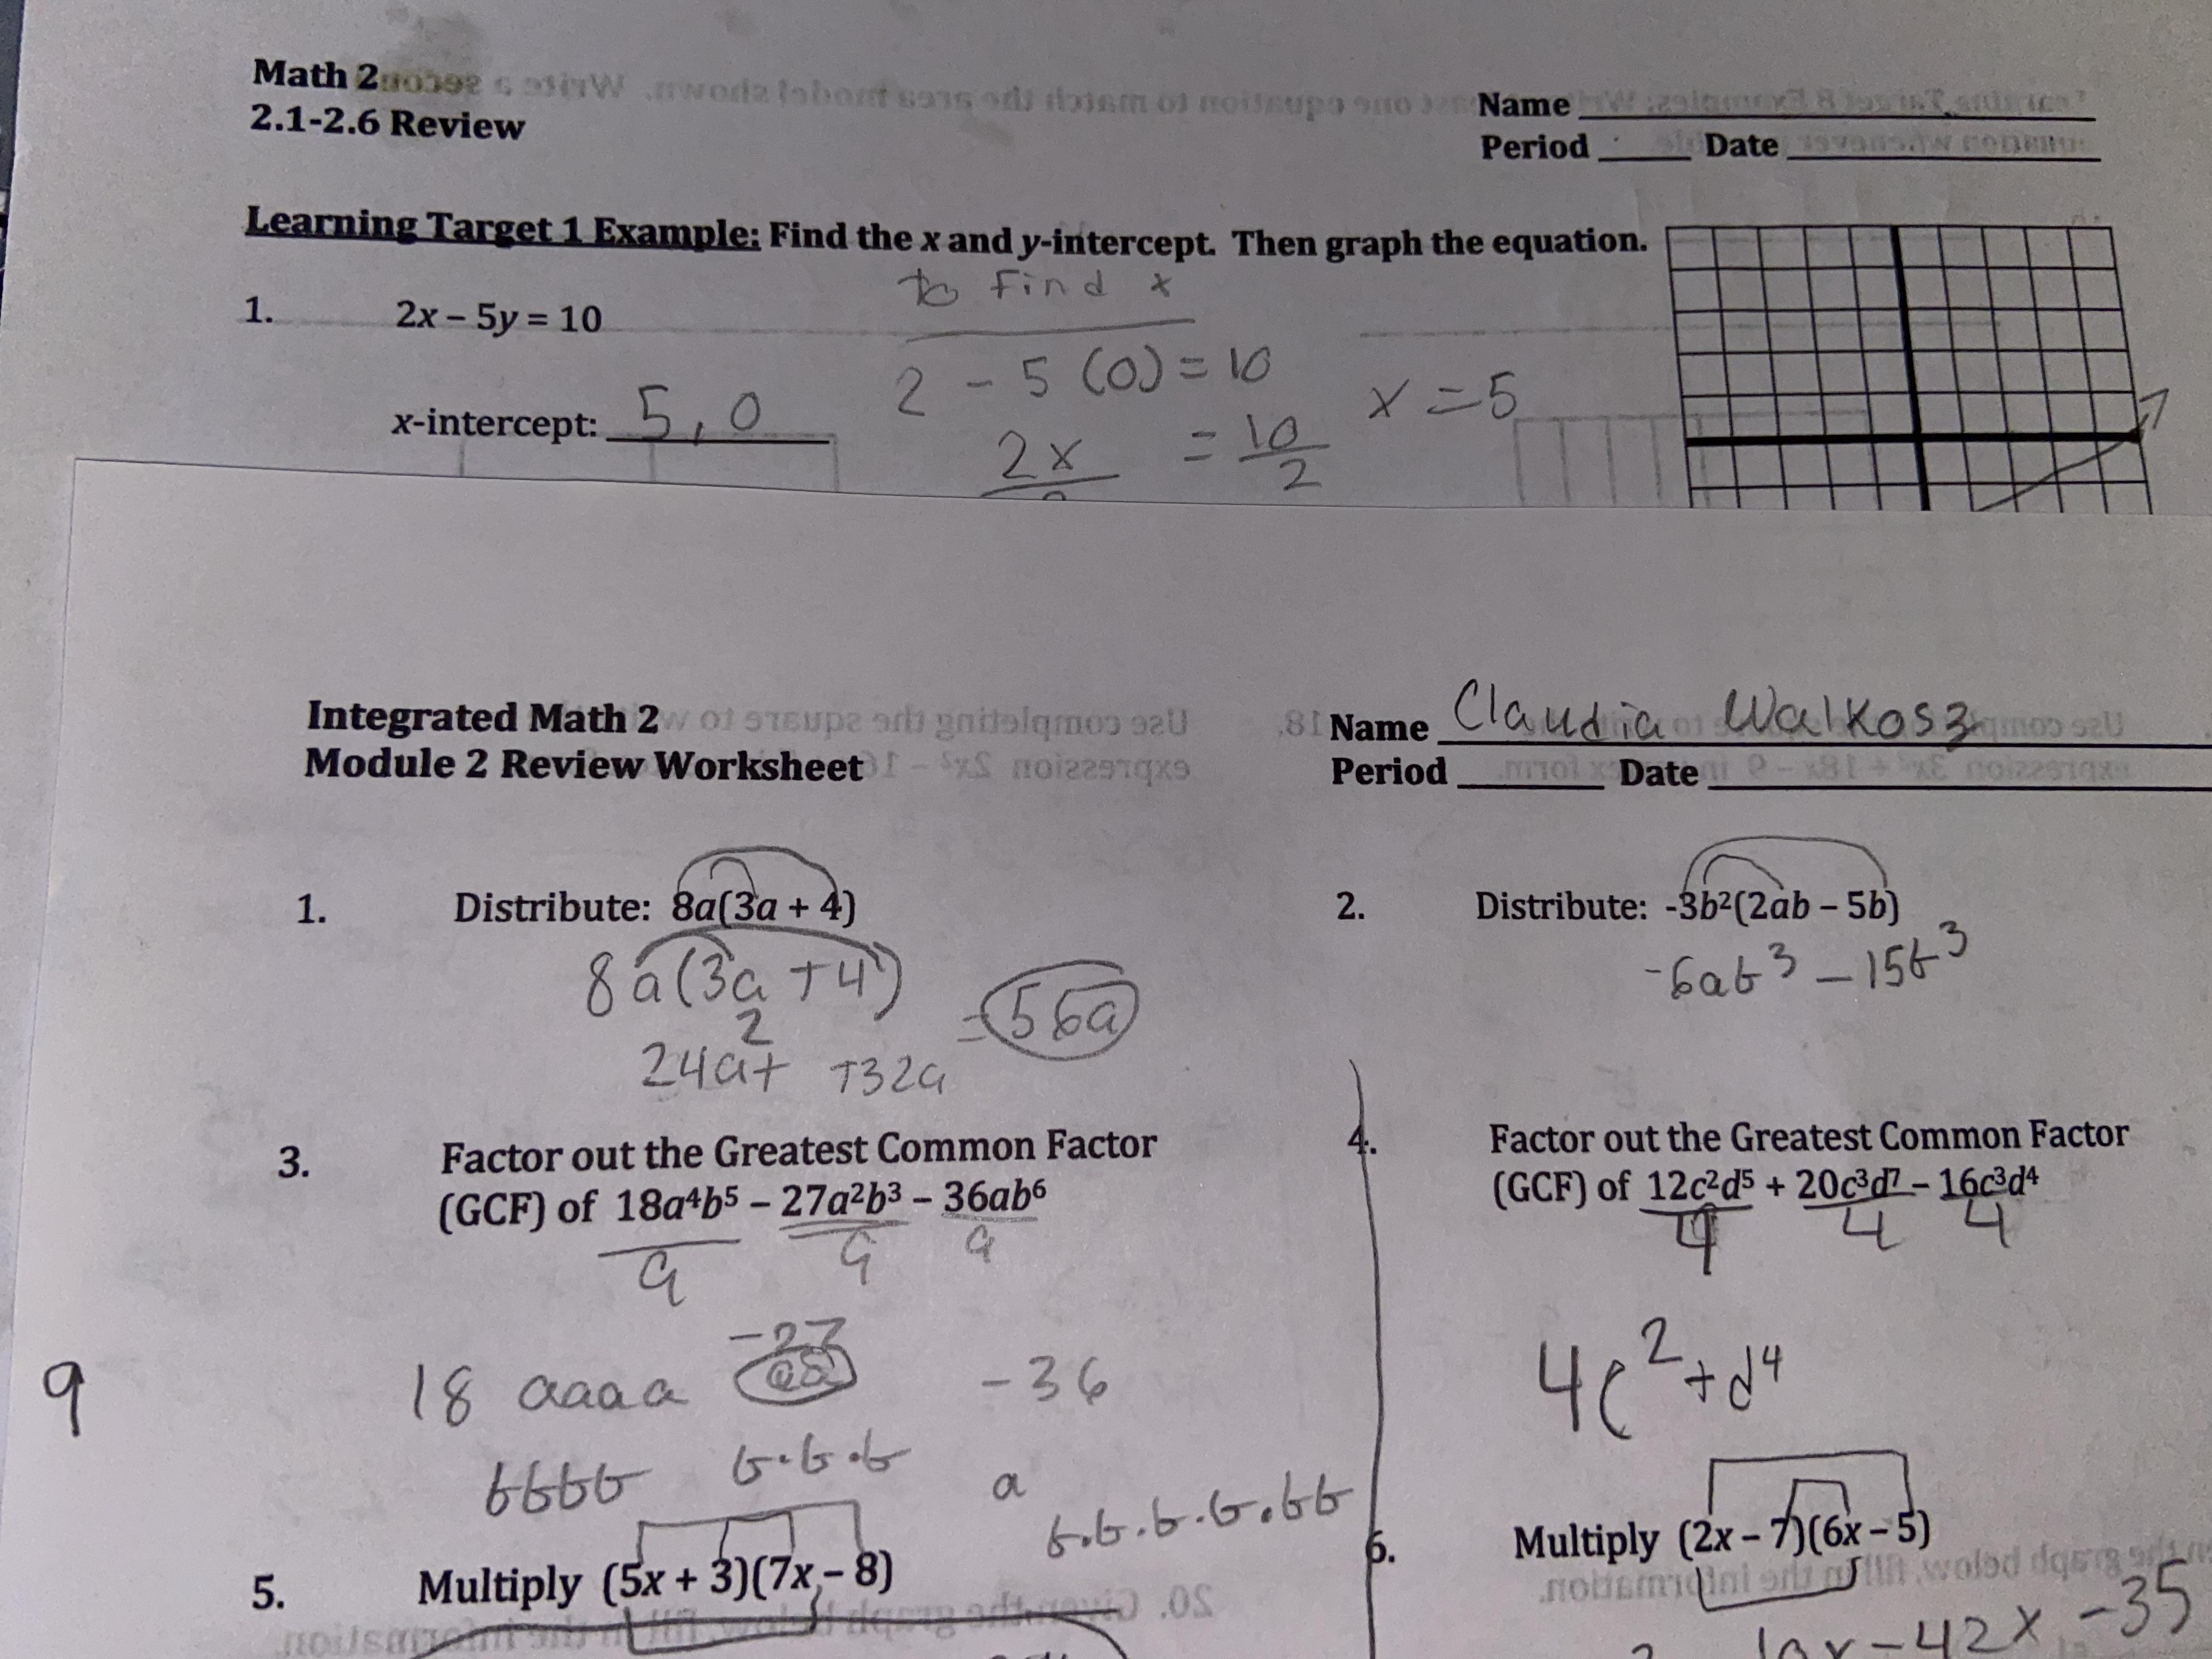 Math 2
2.1-2.6 Review
Name
Period Date
Learning Target 1 Example: Find the x and y-intercept. Then graph the equation.
to find x
1. 2x – 5y = 10
2 - 5 (0) = 10
x = 5
x-intercept: 5, 0
2x = 10
2
Integrated Math 2
Module 2 Review Worksheet
Name Claudia Walkosz
Period Date
1. Distribute: 8a(3a + 4)
8a(3a + 4)
24a2+ +32a = 56a
2. Distribute: -3b²(2ab – 5b)
-6ab³ - 15b³
3. Factor out the Greatest Common Factor
(GCF) of 18a⁴b⁵ – 27a²b³ – 36ab⁶
9 9 9
9
18 aaaa -27 -36
bbbb b·b·b a
b.b.b.b.bb
4. Factor out the Greatest Common Factor
(GCF) of 12c²d⁵ + 20c³d⁷ – 16c³d⁴
4 4 4
4c²+d⁴
5. Multiply (5x + 3)(7x – 8)
6. Multiply (2x – 7)(6x – 5)
-42x -35